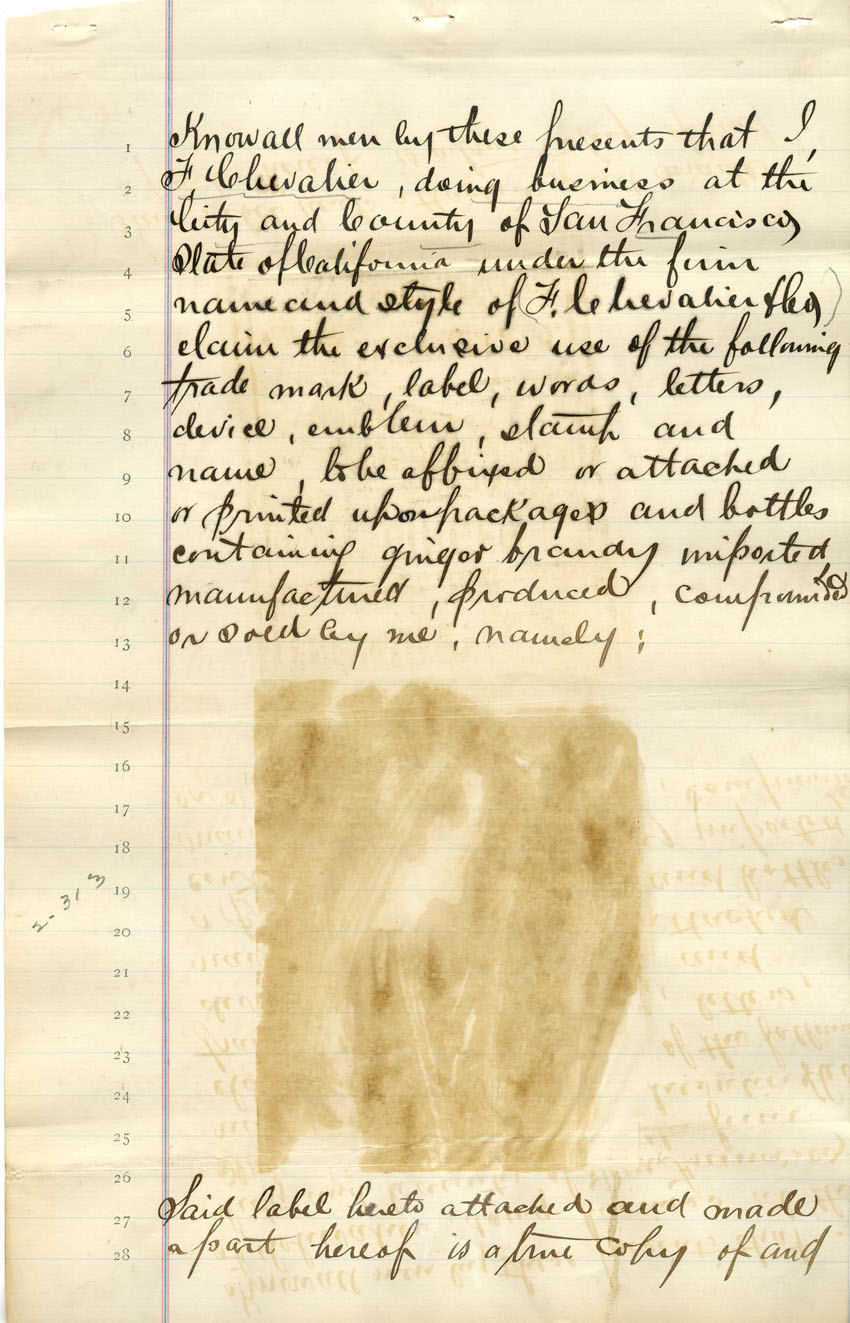 1 Know all men by these presents that I,
2 F. Chevalier, doing business at the
3 City and County of San Francisco,
4 State of California under the firm
5 name and style of (F. Chevalier & Co,)
6 claim the exclusive use of the following
7 trade mark, label, words, letters,
8 device, emblem, stamp and
9 name, to be affixed or attached
10 or printed upon packages and bottles
11 containing ginger brandy imported,
12 manufactured, produced, compounded
13 or sold by me, namely;
14
15
16
17
18
19
2-313
20
21
22
23
24
25
26
27 Said label hereto attached and made
28 a part hereof is a true copy of and